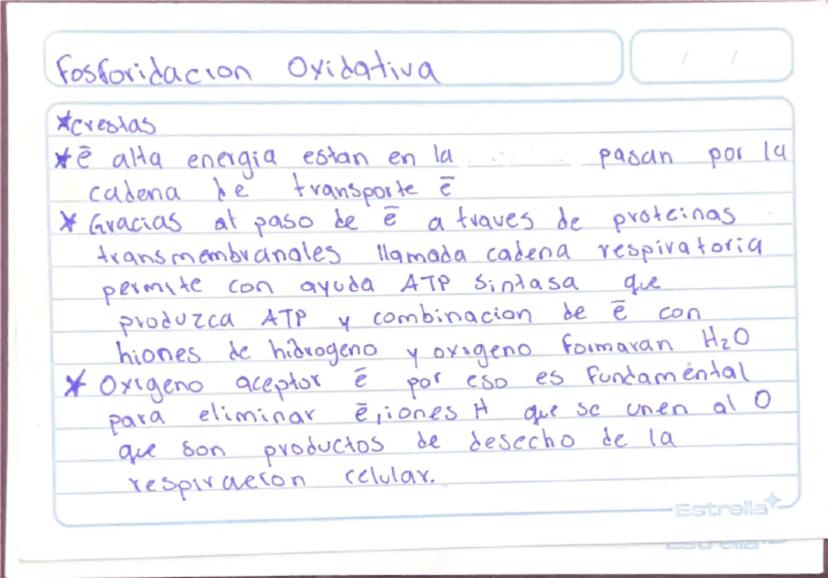 Fosforidacion Oxidativa
/ /
*crestas
* ē alta energia estan en la pasan por la
cadena de transporte ē
* Gracias al paso de ē a traves de proteinas
transmembranales llamada cadena respiratoria
permite con ayuda ATP sintasa que
produzca ATP y combinacion de ē con
hiones de hidrogeno y oxigeno formaran H₂O
* Oxigeno aceptor ē por eso es fundamental
para eliminar ē, iones H que se unen al O
que son productos de desecho de la
respiracion celular.
Estrella